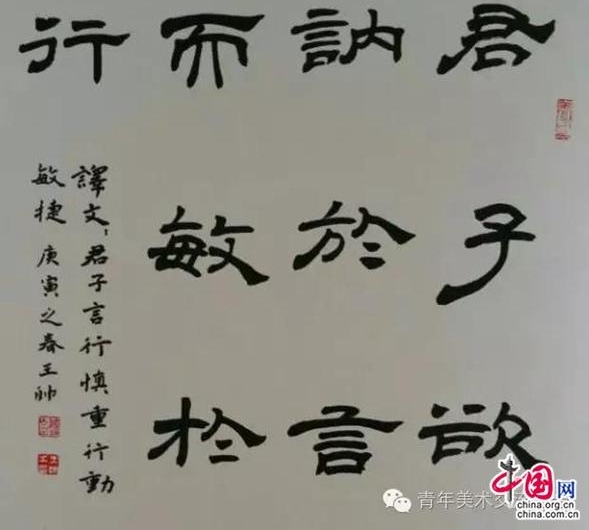 君子欲
訥於言
而敏於
行
譯文：君子言行慎重行動
敏捷 庚寅之春王帥
青年美术交
中国网
china.org.cn
china.com.cn